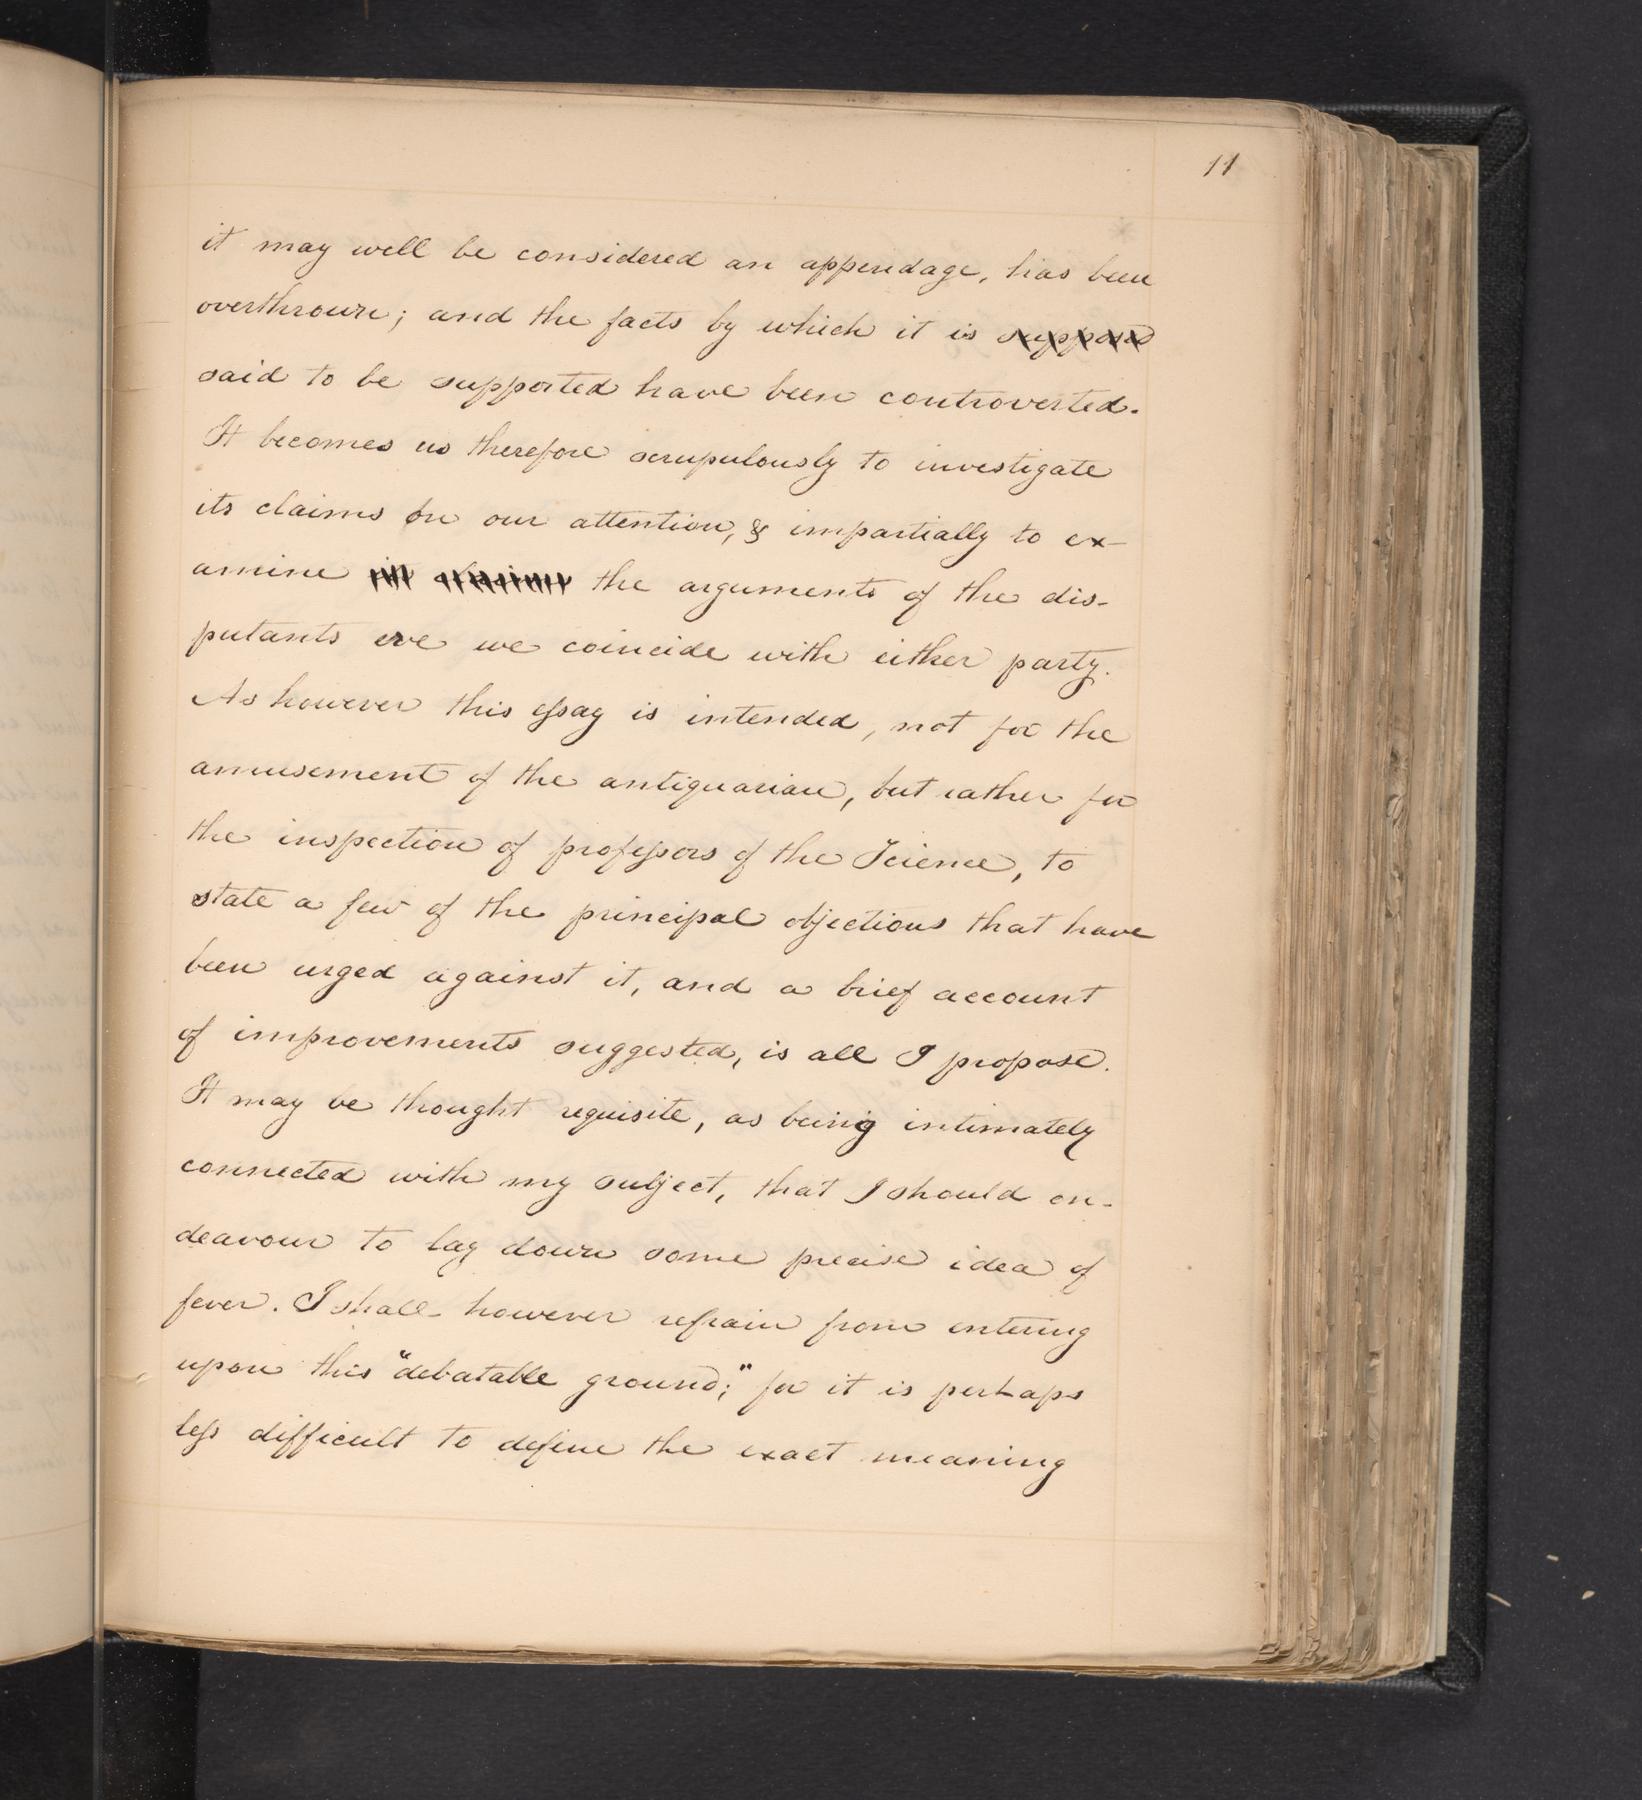 11
it may well be considered an appendage, has been
overthrown; and the facts by which it is suppose
said to be supported have been controverted.
It becomes us therefore scrupulously to investigate
its claims on our attention, & impartially to ex-
amine the arguments of the dis-
putants ere we coincide with either party.
As however this essay is intended, not for the
amusement of the antiquarian, but rather for
the inspection of professors of the Science, to
state a few of the principal objections that have
been urged against it, and a brief account
of improvements suggested, is all I propose.
It may be thought requisite, as being intimately
connected with my subject, that I should en-
deavour to lay down some precise idea of
fever. I shall however refrain from entering
upon this "debatable ground;" for it is perhaps
less difficult to define the exact meaning